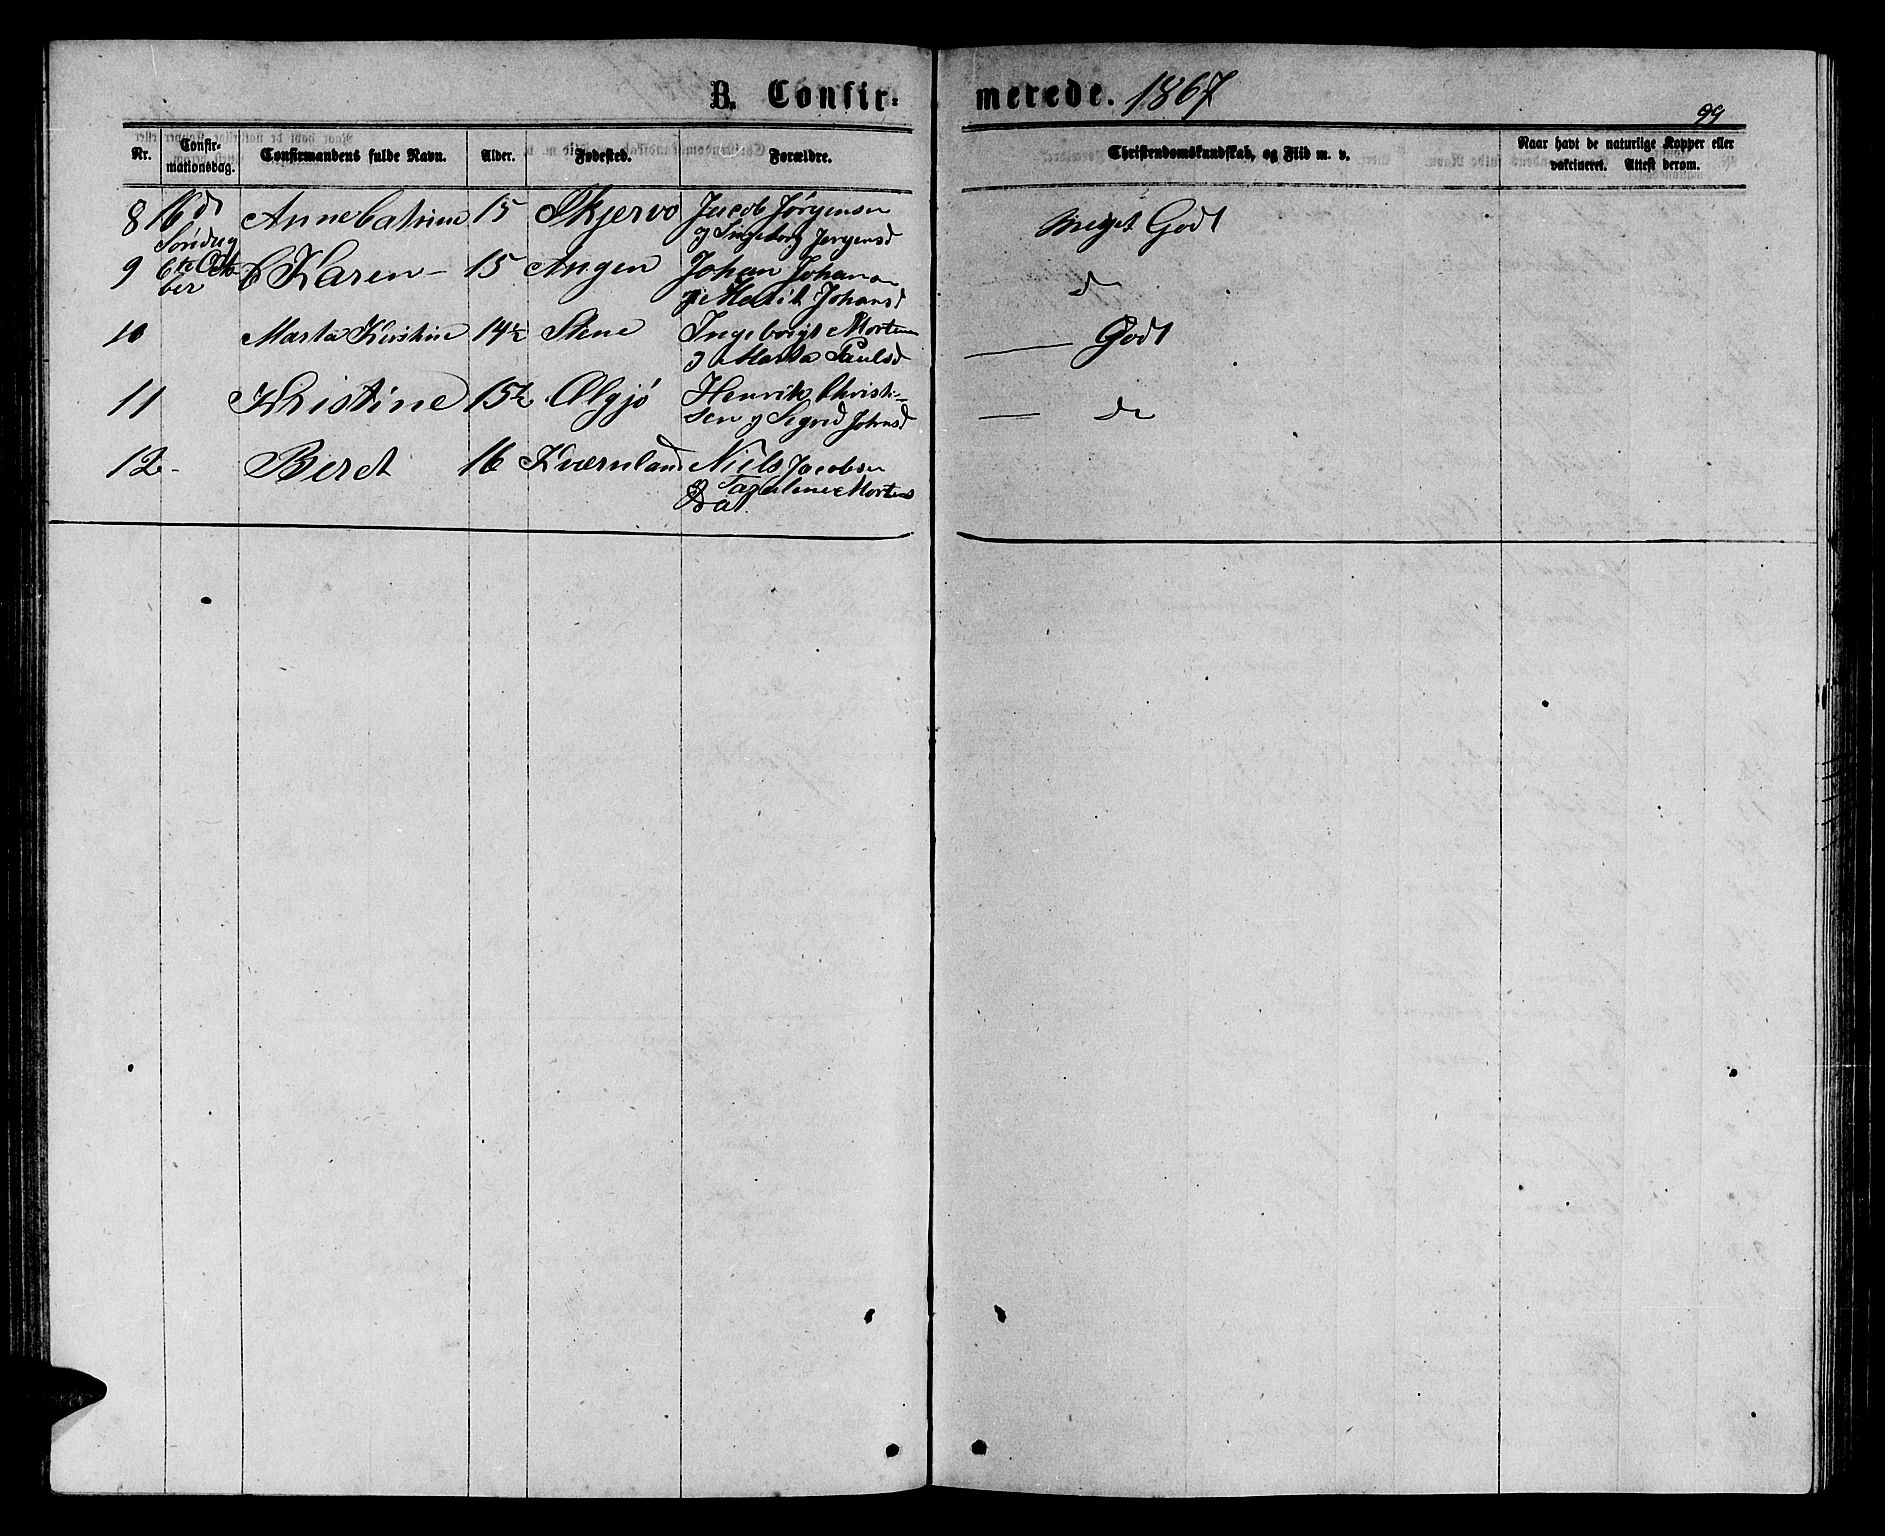 B. Confir- merede. 1867
99
Nr. Confir-mationsdag. Confirmandens fulde Navn. Alder. Fødested. Forældre. Christendomskundskab, og Flid m. v. Naar havt de naturlige Kopper eller vakcineret. Attest derom.
8 16 d Anne Catrine 15 Skjervø Jacob Jørgensen Meget Godt
Søndag og Ingeborg Jørgensd
9 6te Octo Karen - 15 Angen Johan Johan d
ber Marit Johansd
10 Marta Kirstine 14½ Stene Ingeborgt Morten — Godt
og Marta Paulsd
11 Kristine 15½ Olgjø Henrik Christi- — d
sen og Sigrid Johnsd
12- Beret 16 Kværnland Niels Jacobsen
Mortens